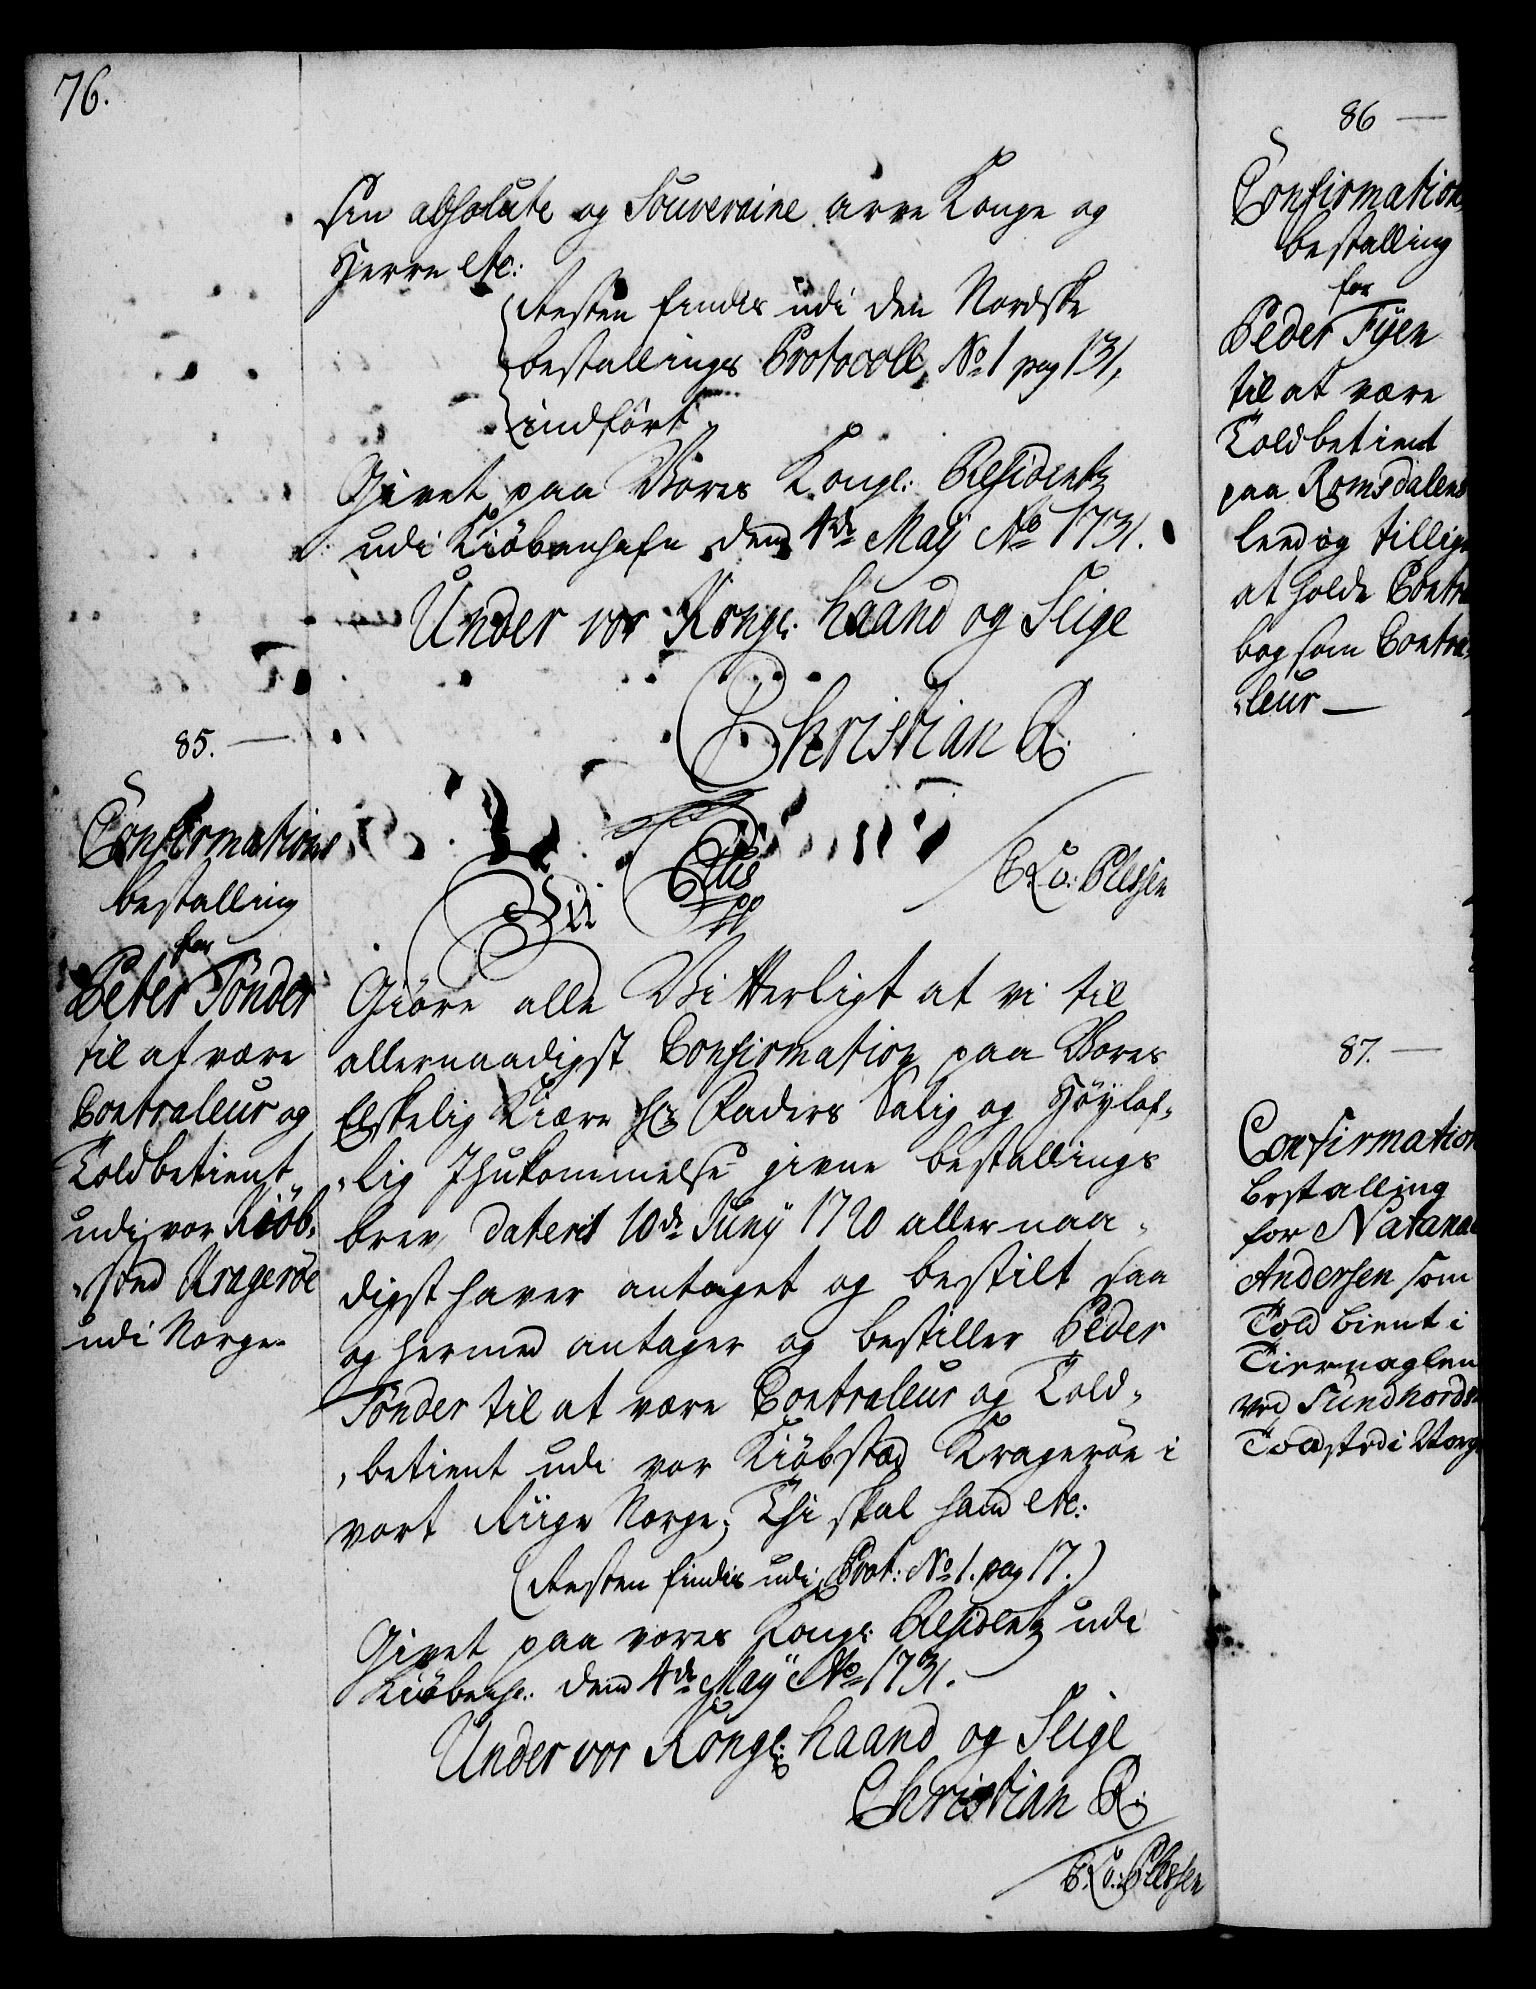 76.
sin absolute og Souveraine arve Konge og
Herre etc:
Resten findes udi den Nordske
bestallings Protocoll, No 1 pag 131,
indført.
Givet paa Vores Kongl: Residentz
udi Kiöbenhafn, dend 4de Maÿ Ao 1731.
Under vor Kongl: haand og Seigl
Christian R.
C. A. v: Plessen
85.
Confirmations
bestalling
for
Peter Tönder
til at være
Contraleur og
Toldbetient
udi vor Kiöb,
,,sted Kragerøe
udi Norge.
Vii CVIs
pp
Giöre alle Vitterligt at vi til
allernaadigst Confirmation paa Vores
Elskelig Kiære Hr Faders Salig og Höÿlof,
,,lig Ihukommelse givne bestallings
brev, daterit 10de Junÿ 1720 allernaa,
digst haver antaget og bestilt saa
og hermed antager og bestiller Peder
Tönder til at være Contraleur og Told,
,,betient udi vor Kiöbsted Kragerøe i
vort Riige Norge; Thi skal hand etc:
(Resten findis udi Prot: No 1. pag 17.)
Givet paa vores Kongl: Residentz udi
Kiöbenh: dend 4de Maÿ Ao 1731.
Under vor Kongl: haand og Seigl
Christian R:
C. A. v: Plessen
86
Confirmations
bestalling
for
Peder Fÿen
til at være
Toldbetient
paa Romsdalens
leed og tillige
at holde Contra
bog som Contra,
,,leur
87.
Confirmation
bestalling
for Natana
Andersen som
Told bient i
Tiernaglen
ved Sundhords
Toldsted i Norg